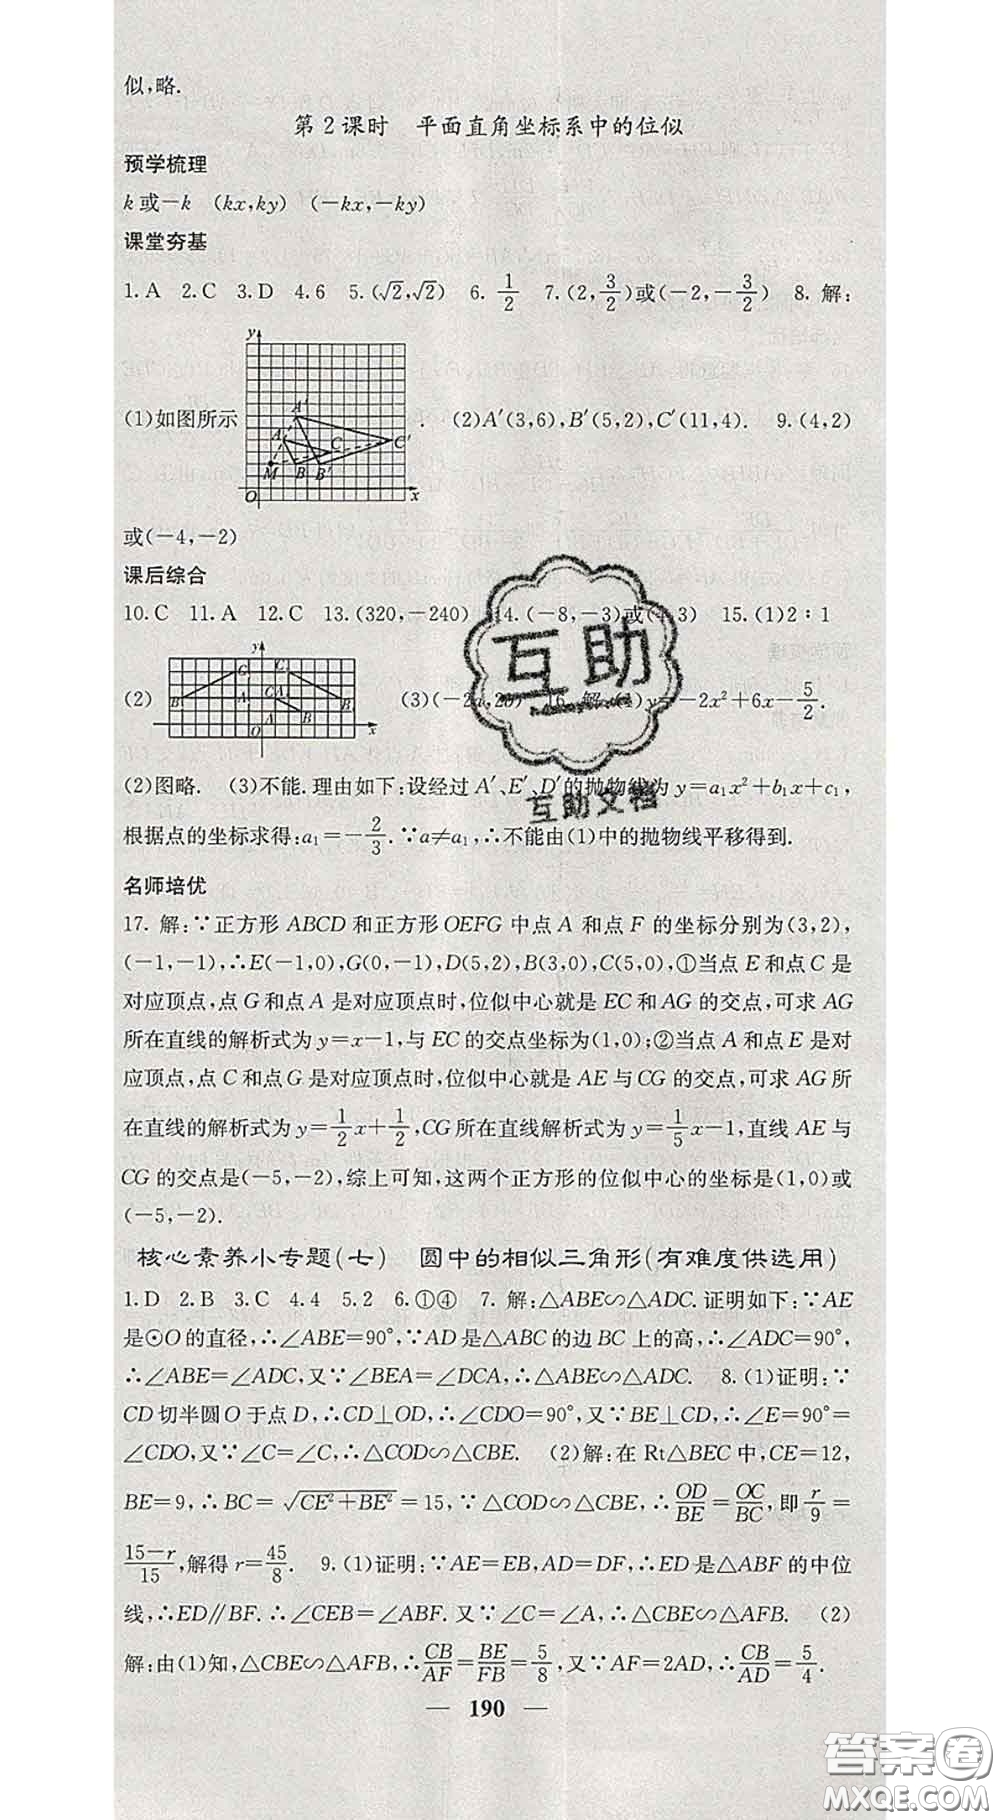 似,略.
第2课时　平面直角坐标系中的位似
预学梳理
k或-k　(kx,ky)　(-kx,-ky)
课堂夯基
1.A　2.C　3.D　4.6　5.(√2,√2)　6.1/2　7.(2,3/2)或(-2,-3/2)　8.解:
(1)如图所示　.　(2)A′(3,6),B′(5,2),C′(11,4).　9.(4,2)
y A′ A C C′ M B B′ O x
或(-4,-2)
课后综合
10.C　11.A　12.C　13.(320,-240)　14.(-8,-3)或(4,3)　15.(1)2∶1
(2)　(3)(-2a,2b)　16.解:(1)y=-2x²+6x-5/2.
(2)图略.　(3)不能.理由如下:设经过A′、E′、D′的抛物线为y=a₁x²+b₁x+c₁,
根据点的坐标求得:a₁=-2/3.∵a≠a₁,∴不能由(1)中的抛物线平移得到.
名师培优
17.解:∵正方形ABCD和正方形OEFG中点A和点F的坐标分别为(3,2),
(-1,-1),∴E(-1,0),G(0,-1),D(5,2),B(3,0),C(5,0),①当点E和点C是
对应顶点,点G和点A是对应顶点时,位似中心就是EC和AG的交点,可求AG
所在直线的解析式为y=x-1,与EC的交点坐标为(1,0);②当点A和点E是对
应顶点,点C和点G是对应顶点时,位似中心就是AE与CG的交点,可求AG所
在直线的解析式为y=1/2x+1/2,CG所在直线解析式为y=1/5x-1,直线AE与
CG的交点是(-5,-2),综上可知,这两个正方形的位似中心的坐标是(1,0)或
(-5,-2).
核心素养小专题(七)　圆中的相似三角形(有难度供选用)
1.D　2.B　3.C　4.4　5.2　6.①④　7.解:△ABE∽△ADC.证明如下:∵AE
是⊙O的直径,∴∠ABE=90°,∵AD是△ABC的边BC上的高,∴∠ADC=90°,
∴∠ABE=∠ADC,又∵∠BEA=∠DCA,∴△ABE∽△ADC.　8.(1)证明:∵
CD切半圆O于点D,∴CD⊥OD,∴∠CDO=90°,又∵BE⊥CD,∴∠E=90°=
∠CDO,又∵∠C=∠C,∴△COD∽△CBE.　(2)解:在Rt△BEC中,CE=12,
BE=9,∴BC=√(CE²+BE²)=15,∵△COD∽△CBE,∴OD/BE=OC/BC,即r/9=
(15-r)/15,解得r=45/8.　9.(1)证明:∵AE=EB,AD=DF,∴ED是△ABF的中位
线,∴ED∥BF.∴∠CEB=∠ABF.又∵∠C=∠A,∴△CBE∽△AFB.　(2)
解:由(1)知,△CBE∽△AFB,∴CB/AF=BE/FB=5/8,又∵AF=2AD,∴CB/AD=5/4.
— 190 —
互助
互助文档
答案圈
MXQE.COM